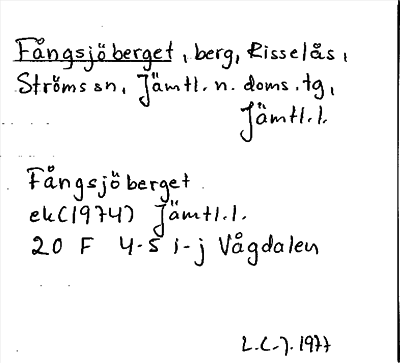 Fångsjöberget, berg, Risselås,
Ströms sn, Jämtl. n. doms. tg,
Jämtl. l.
Fångsjöberget
ek (1974) Jämtl. l.
20 F 4-5 i-j Vågdalen
L.C-J. 1977